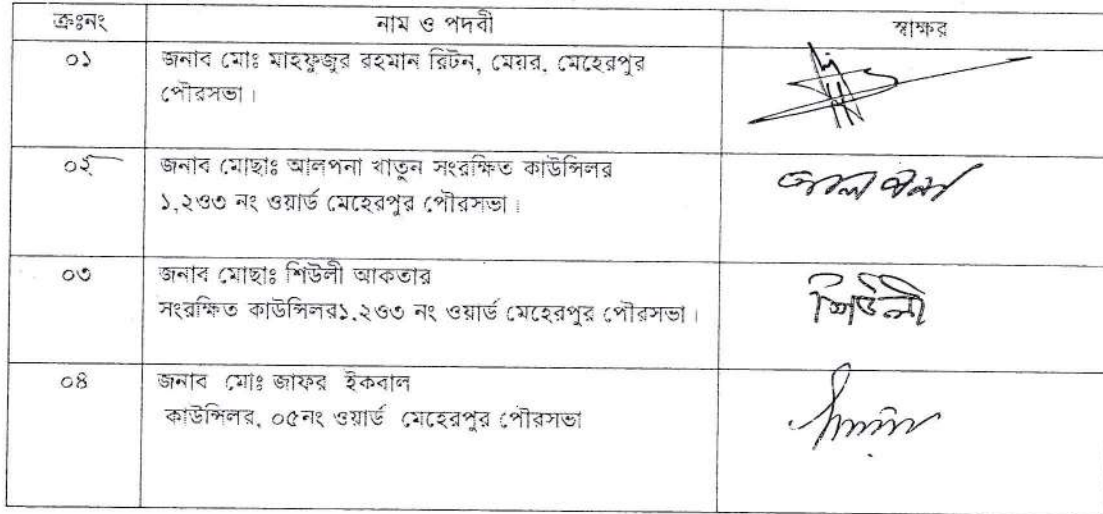 ক্রঃনং নাম ও পদবী স্বাক্ষর
০১ জনাব মোঃ মাহফুজুর রহমান রিটন, মেয়র, মেহেরপুর
পৌরসভা।
০২ জনাব মোছাঃ আলপনা খাতুন সংরক্ষিত কাউন্সিলর আলপনা
১,২ও৩ নং ওয়ার্ড মেহেরপুর পৌরসভা।
০৩ জনাব মোছাঃ শিউলী আকতার
সংরক্ষিত কাউন্সিলর১,২ও৩ নং ওয়ার্ড মেহেরপুর পৌরসভা। শিউলী
০৪ জনাব মোঃ জাফর ইকবাল
কাউন্সিলর, ০৫নং ওয়ার্ড মেহেরপুর পৌরসভা